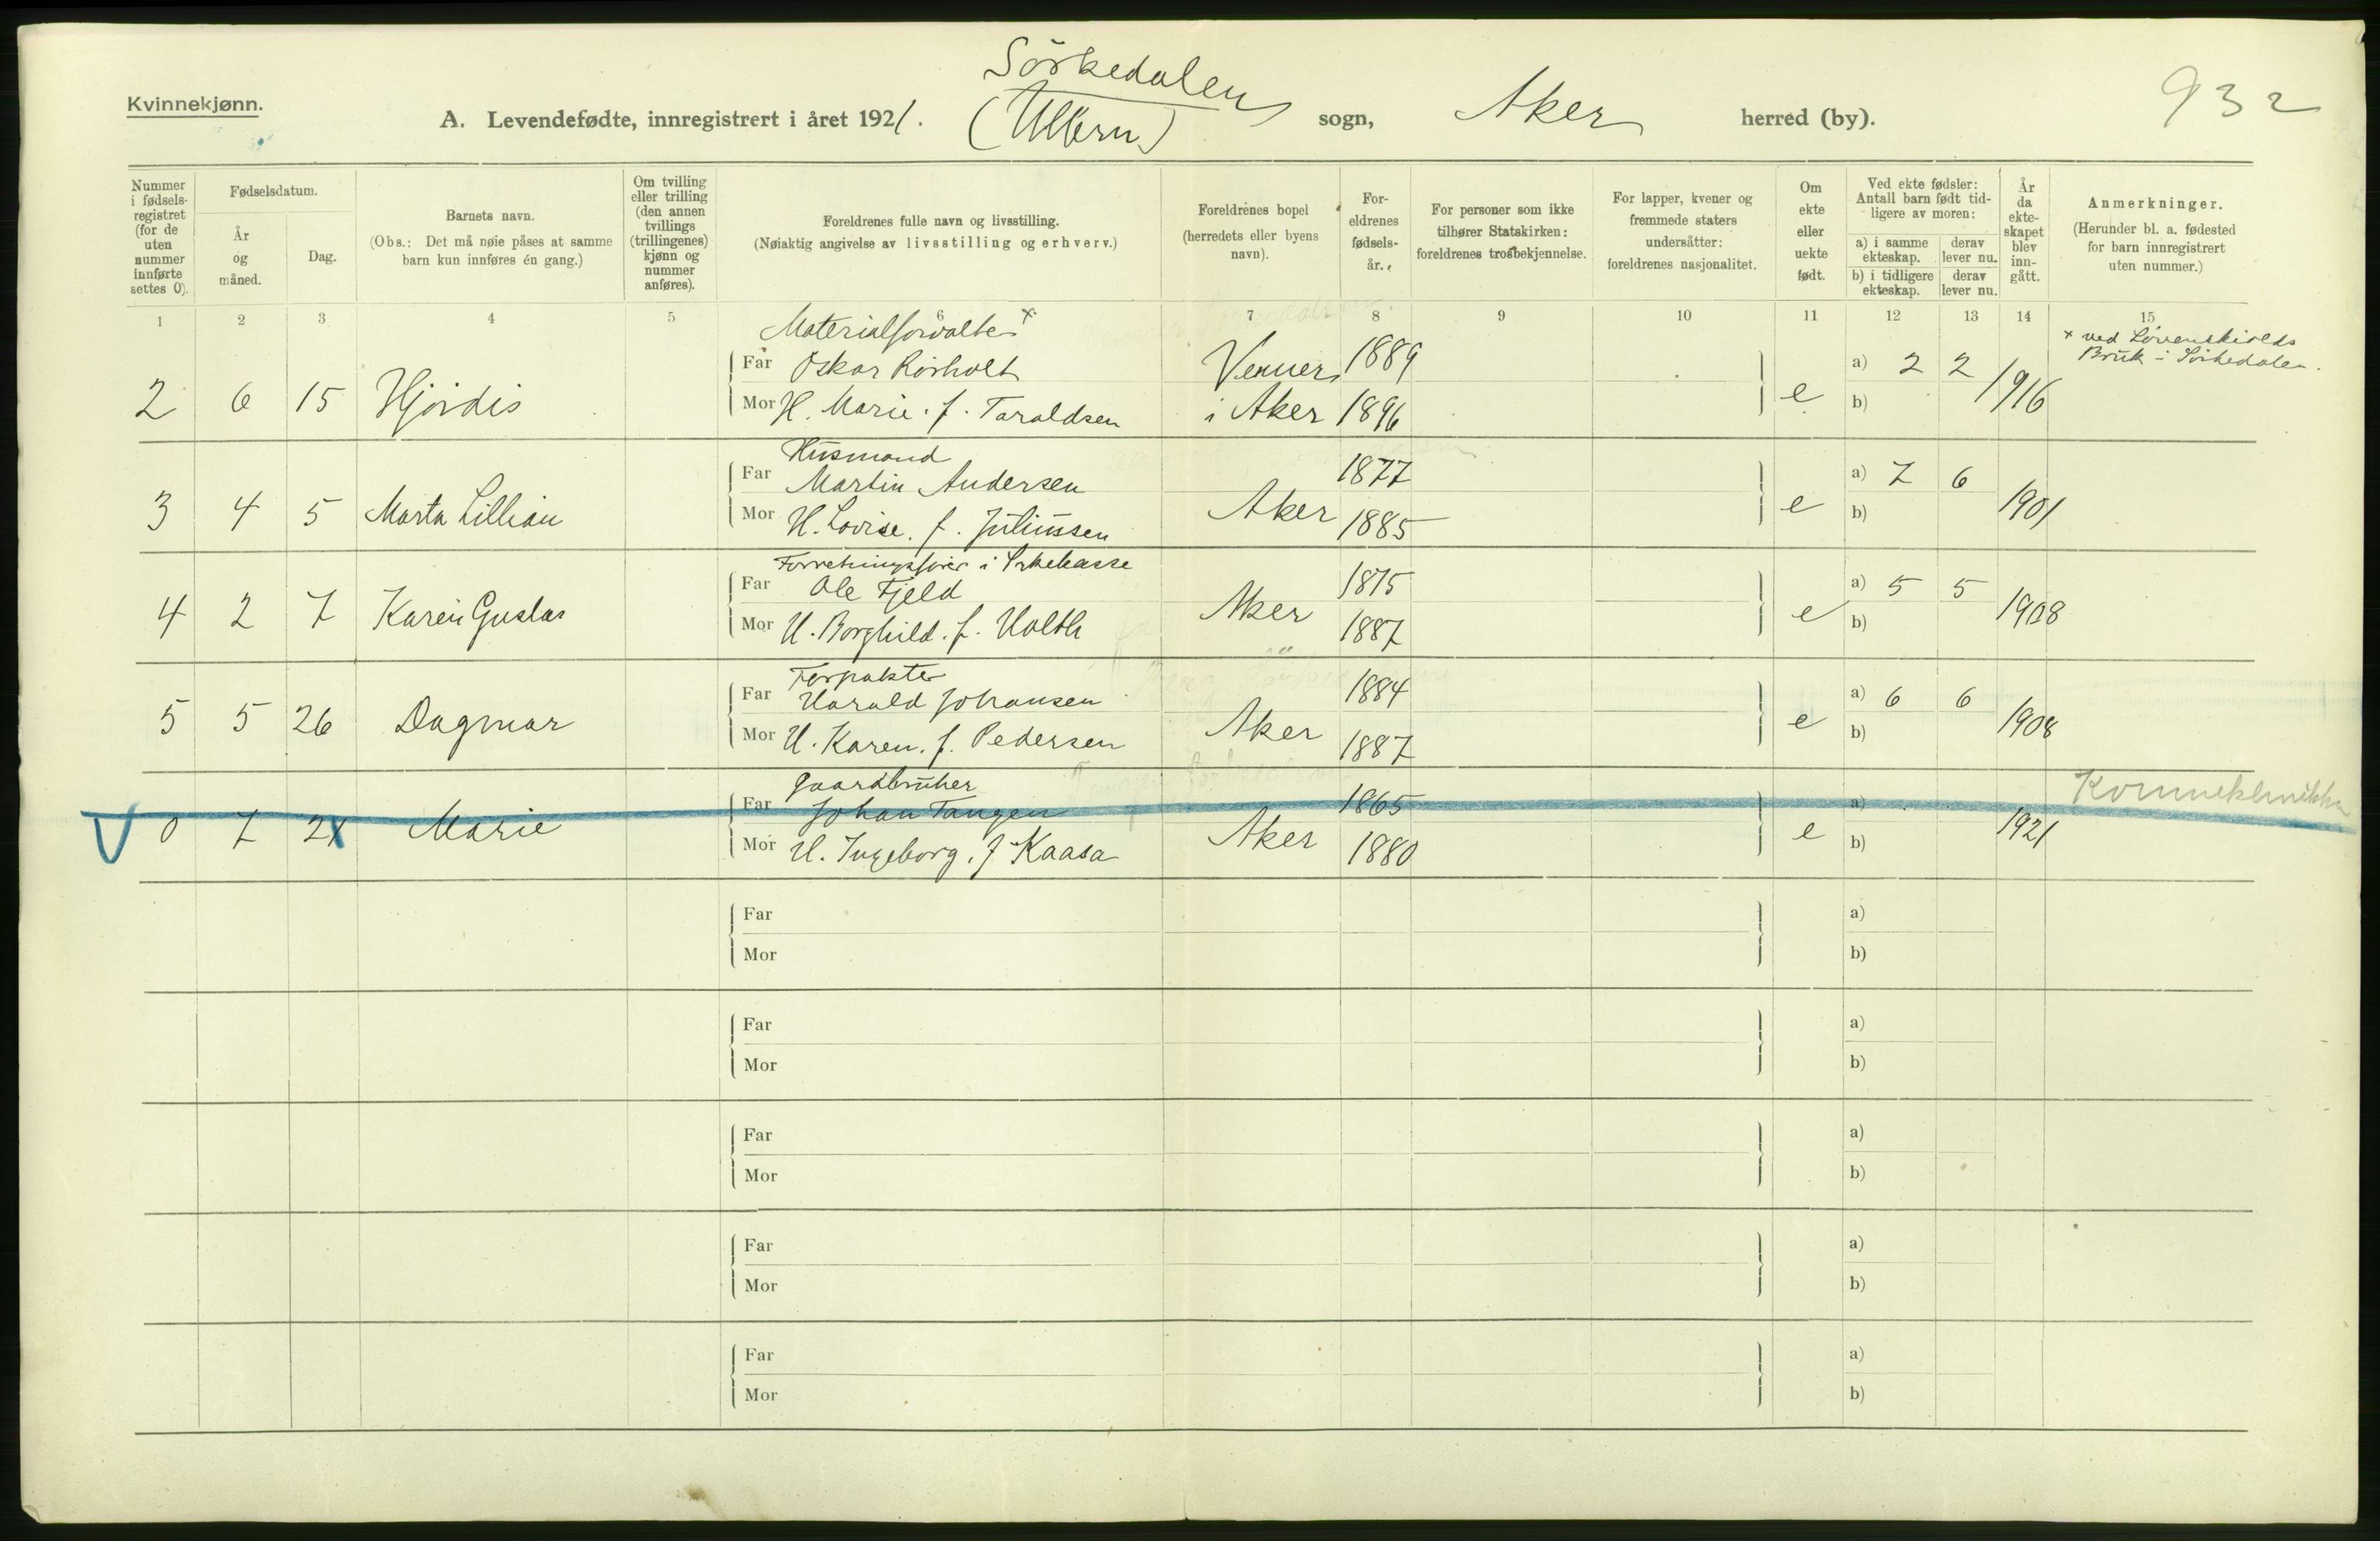 Kvinnekjønn.
A. Levendefødte, innregistrert i året 1921.
Sörkedalens
(Ullern)
sogn,
Aker
herred (by).
932
Nummer i fødsels-registret (for de uten nummer innførte settes 0).
Fødselsdatum.
År og måned.
Dag.
Barnets navn.
(Obs.: Det må nøie påses at samme barn kun innføres én gang.)
Om tvilling eller trilling (den annen tvillings (trillingenes) kjønn og nummer anføres).
Foreldrenes fulle navn og livsstilling.
(Nøiaktig angivelse av livsstilling og erhverv.)
Foreldrenes bopel (herredets eller byens navn).
For-eldrenes fødsels-år.
For personer som ikke tilhører Statskirken: foreldrenes trosbekjennelse.
For lapper, kvener og fremmede staters undersåtter: foreldrenes nasjonalitet.
Om ekte eller uekte født.
Ved ekte fødsler: Antall barn født tid-ligere av moren:
a) i samme ekteskap.
derav lever nu.
b) i tidligere ekteskap.
derav lever nu.
År da ekte-skapet blev inn-gått.
Anmerkninger.
(Herunder bl. a. fødested for barn innregistrert uten nummer.)
1 2 3 4 5 6 7 8 9 10 11 12 13 14 15
Materialforvalter x
x ved Lövenskiolds
Bruk i Sörkedalen.
Far Oskar Rörholt 1889 a) 2 2
2 6 15 Hjördis Venner i Aker e 1916
Mor H. Marie. f. Taraldsen 1896 b)
Husmand
Far Martin Andersen 1877 a) 7 6
3 4 5 Marta Lillian Aker e 1901
Mor H. Lovise. f. Juliussen 1885 b)
Forretningsförer i Sykekasse
Far Ole Fjeld 1875 a) 5 5
4 2 7 Karen Aker e 1908
Mor H. Borghild. f. Holth 1887 b)
Forpakter
Far Harald Johansen 1884 a) 6 6
5 5 26 Dagmar Aker e 1908
Mor H. Karen. f. Pedersen 1887 b)
Gaardbruker
Far Johan Tangen 1865 a)
0 7 2 Marie Aker e 1921
Mor H. Ingeborg. f Kaasa 1880 b)
Far a)
Mor b)
Far a)
Mor b)
Far a)
Mor b)
Far a)
Mor b)
Far a)
Mor b)